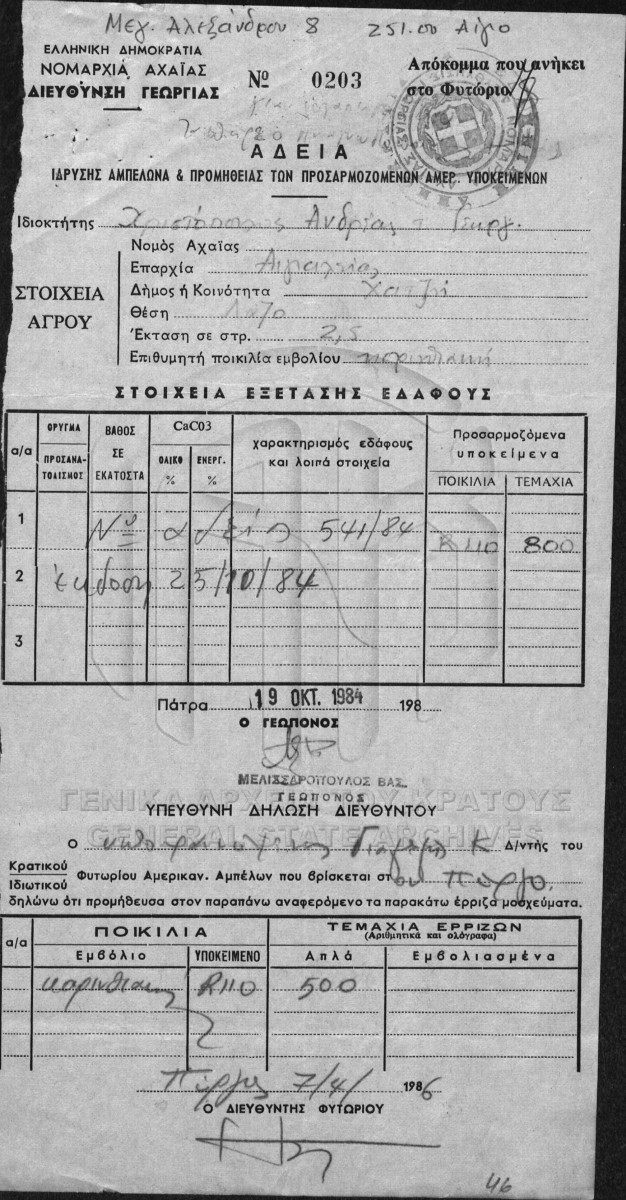 Μεγ. Αλεξάνδρου 8 251.00 Αίγιο
ΕΛΛΗΝΙΚΗ ΔΗΜΟΚΡΑΤΙΑ
ΝΟΜΑΡΧΙΑ ΑΧΑΪΑΣ
ΔΙΕΥΘΥΝΣΗ ΓΕΩΡΓΙΑΣ
Νº 0203
Απόκομμα που ανήκει
στο Φυτώριο
ΑΔΕΙΑ
ΙΔΡΥΣΗΣ ΑΜΠΕΛΩΝΑ & ΠΡΟΜΗΘΕΙΑΣ ΤΩΝ ΠΡΟΣΑΡΜΟΖΟΜΕΝΩΝ ΑΜΕΡ. ΥΠΟΚΕΙΜΕΝΩΝ
Ιδιοκτήτης Ανδρέας Γεωργ.
ΣΤΟΙΧΕΙΑ ΑΓΡΟΥ
Νομός Αχαΐας
Επαρχία Αιγιαλείας
Δήμος ή Κοινότητα Χατζή
Θέση
Έκταση σε στρ. 2,5
Επιθυμητή ποικιλία εμβολίου κορινθιακή
ΣΤΟΙΧΕΙΑ ΕΞΕΤΑΣΗΣ ΕΔΑΦΟΥΣ
α/α ΟΡΥΓΜΑ ΠΡΟΣΑΝΑΤΟΛΙΣΜΟΣ ΒΑΘΟΣ ΣΕ ΕΚΑΤΟΣΤΑ CaCO3 ΟΛΙΚΟ % ΕΝΕΡΓ. % χαρακτηρισμός εδάφους και λοιπά στοιχεία Προσαρμοζόμενα υποκείμενα ΠΟΙΚΙΛΙΑ ΤΕΜΑΧΙΑ
1 Νº 541/84 R110 800
2 έκδοση 25/10/84
3
Πάτρα 19 ΟΚΤ. 1984 198
Ο ΓΕΩΠΟΝΟΣ
ΜΕΛΙΣΣΑΡΟΠΟΥΛΟΣ ΒΑΣ.
ΓΕΩΠΟΝΟΣ
ΓΕΝΙΚΑ ΑΡΧΕΙΑ ΤΟΥ ΚΡΑΤΟΥΣ
ΥΠΕΥΘΥΝΗ ΔΗΛΩΣΗ ΔΙΕΥΘΥΝΤΟΥ
GENERAL STATE ARCHIVES
Ο Κ Δ/ντής του
Κρατικού
Ιδιωτικού Φυτωρίου Αμερικαν. Αμπέλων που βρίσκεται στον Πύργο.
δηλώνω ότι προμήθευσα στον παραπάνω αναφερόμενο τα παρακάτω έρριζα μοσχεύματα.
α/α ΠΟΙΚΙΛΙΑ Εμβόλιο ΥΠΟΚΕΙΜΕΝΟ ΤΕΜΑΧΙΑ ΕΡΡΙΖΩΝ (Αριθμητικά και ολόγραφα) Απλά Εμβολιασμένα
κορινθιακή R110 500
Πύργος 7/4/ 1986
Ο ΔΙΕΥΘΥΝΤΗΣ ΦΥΤΩΡΙΟΥ
46